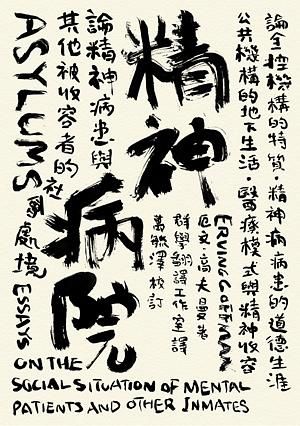 論全控機構的特質・精神病病患的道德生涯
公共機構的地下生活・醫療模式與精神收容
ERVING GOFFMAN
厄文・高夫曼 著
群學翻譯工作室 譯
萬毓澤 校訂
精神
病院
論精神病患與
其他被收容者的
社會處境
ASYLUMS
ESSAYS
ON THE
SOCIAL SITUATION OF MENTAL
PATIENTS AND OTHER INMATES